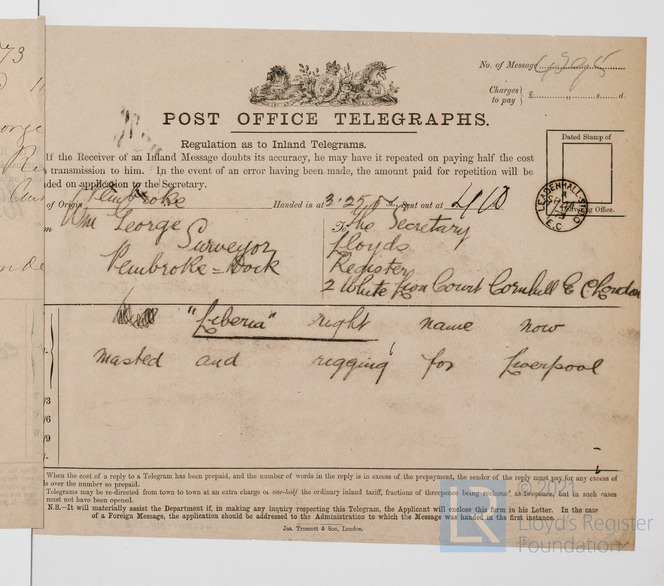 73
No. of Message
Charges to pay } £ s. d.
POST OFFICE TELEGRAPHS.
Dated Stamp of
Regulation as to Inland Telegrams.
If the Receiver of an Inland Message doubts its accuracy, he may have it repeated on paying half the cost
s transmission to him. In the event of an error having been made, the amount paid for repetition will be
ded on application to the Secretary.
LEADENHALL
E.C
iving Office.
of Origin Pembroke Handed in at 3.25 Sent out at 4.0
Wm George
Surveyor
Pembroke = Dock
The Secretary
Lloyds
Register
2 White Lion Court Cornhill E C London
"Liberia" right name now
masted and rigging for Liverpool
/3
/6
/9
When the cost of a reply to a Telegram has been prepaid, and the number of words in the reply is in excess of the prepayment, the sender of the reply must pay for any excess of
s over the number so prepaid.
Telegrams may be re-directed from town to town at an extra charge of one-half the ordinary inland tariff, fractions of threepence being reckoned as threepence, but in such cases
must not have been opened.
N.B.—It will materially assist the Department if, in making any inquiry respecting this Telegram, the Applicant will enclose this form in his Letter. In the case
of a Foreign Message, the application should be addressed to the Administration to which the Message was handed in the first instance.
Jas. Truscott & Son, London.
LR
© 2021
Lloyd's Register
Foundation